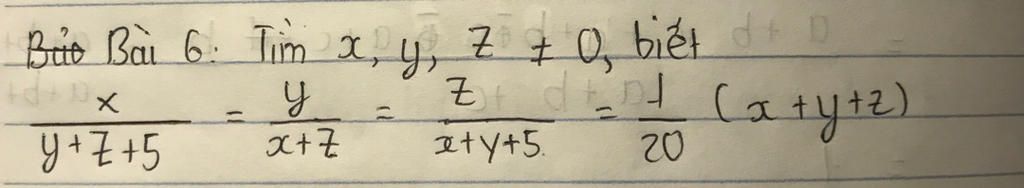 Bài 6: Tìm x, y, z ≠ 0, biết
x/(y+z+5) = y/(x+z) = z/(x+y+5) = 1/20 (x+y+z)